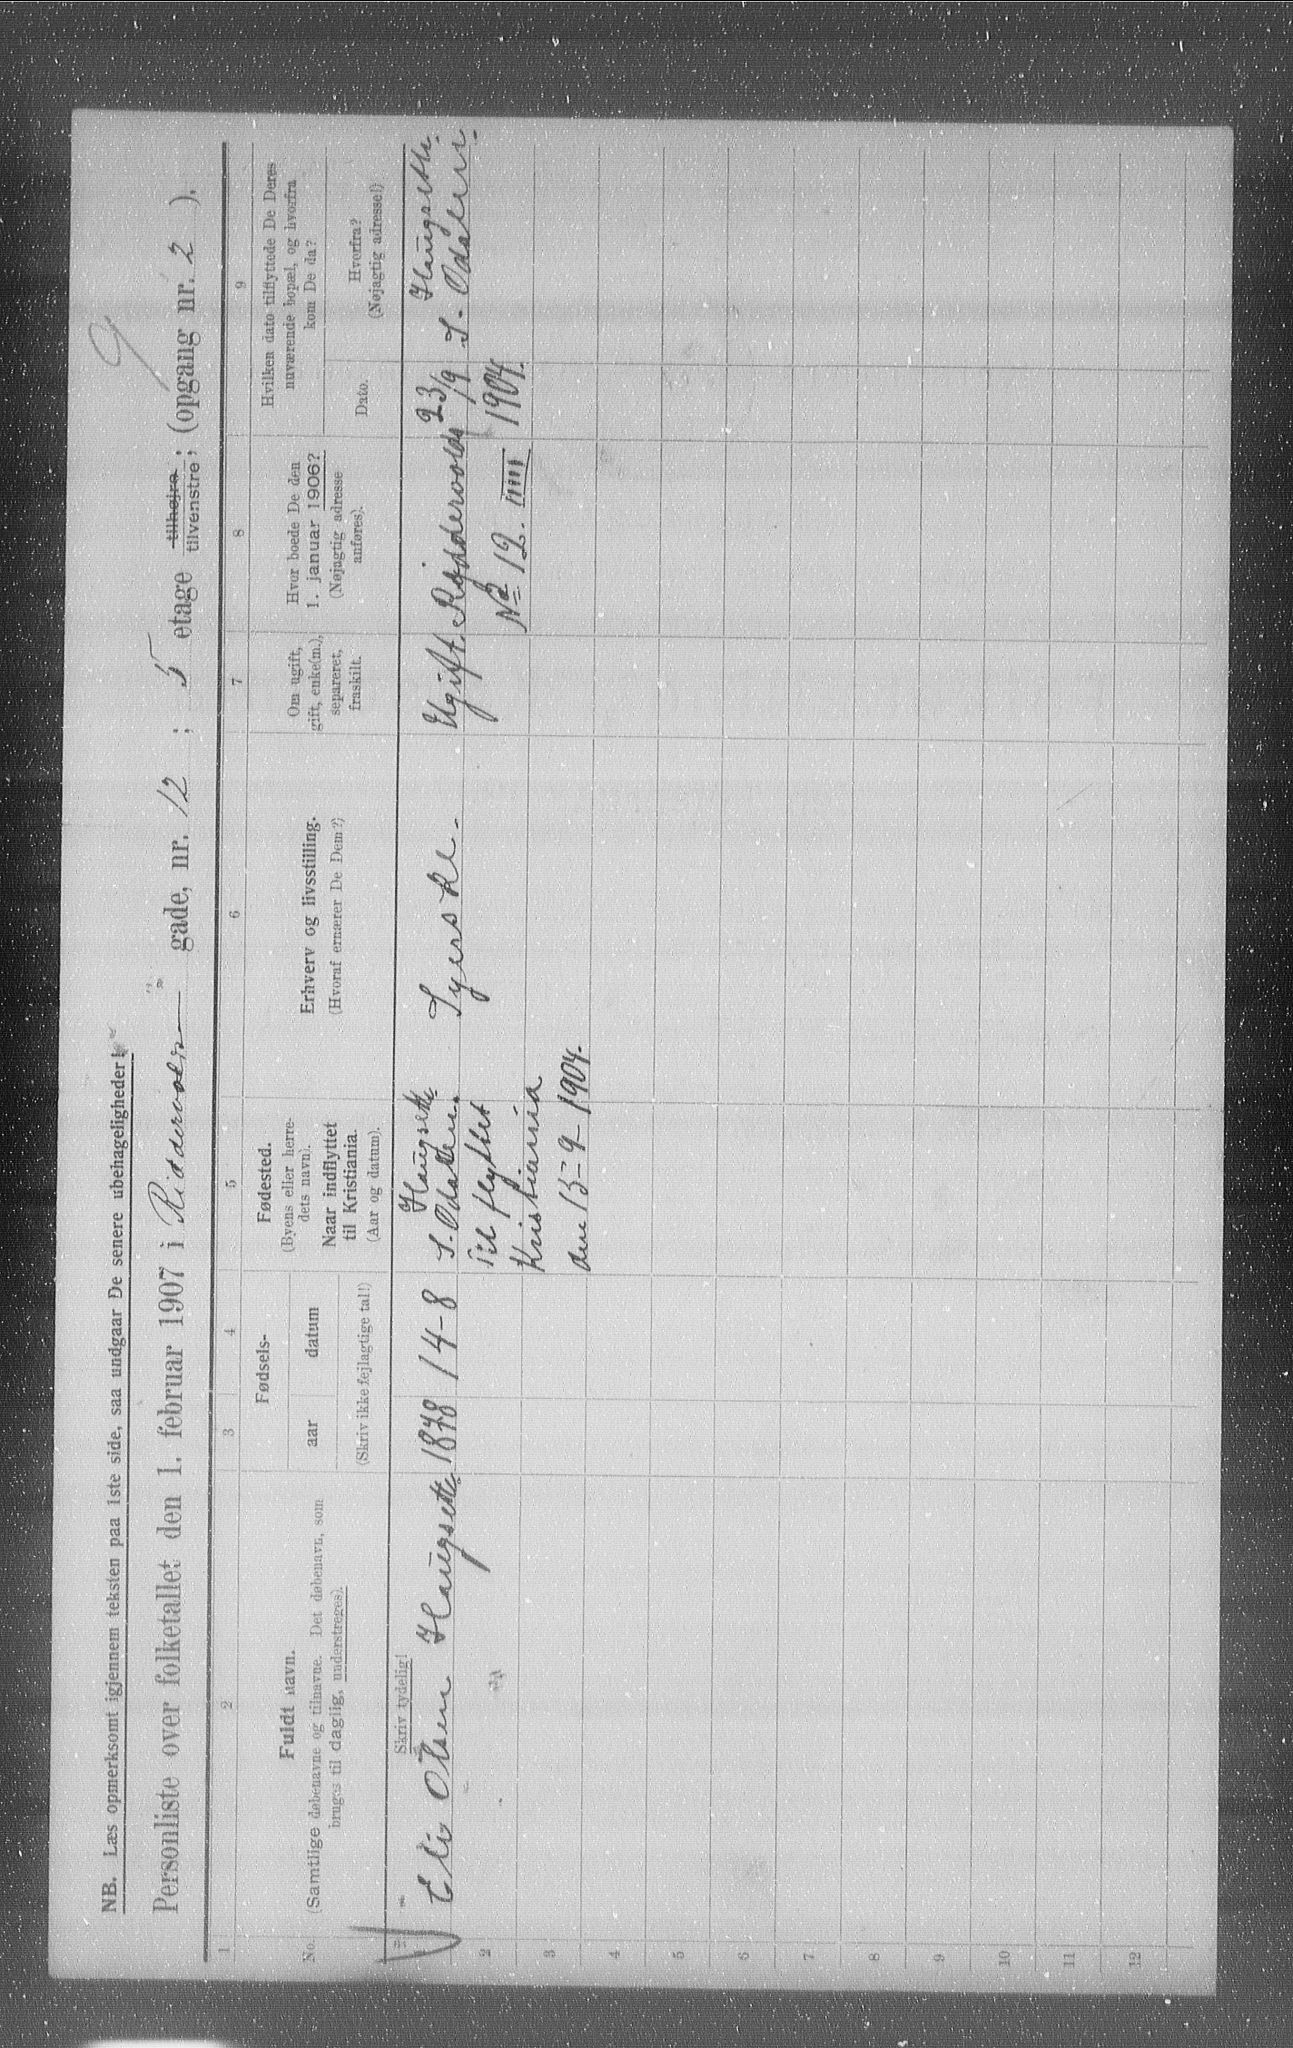 NB. Læs opmerksomt igjennem teksten paa 1ste side, saa undgaar De senere ubehageligheder!
9
Personliste over folketallet den 1. februar 1907 i Riddervolds gade, nr. 12; 5 etage tilhøjre tilvenstre; (opgang nr. 2).
1 2 3 4 5 6 7 8 9
No.
Fuldt navn.
(Samtlige døbenavne og tilnavne. Det døbenavn, som
bruges til daglig, understreges).
Fødsels-
aar datum
(Skriv ikke fejlagtige tal!)
Fødested.
(Byens eller herre-
dets navn).
Naar indflyttet
til Kristiania.
(Aar og datum).
Erhverv og livsstilling.
(Hvoraf ernærer De Dem?)
Om ugift,
gift, enke(m.),
separeret,
fraskilt.
Hvor boede De den
1. januar 1906?
(Nøjagtig adresse
anføres).
Hvilken dato tilflyttede De Deres
nuværende bopæl, og hvorfra
kom De da?
Dato.
Hvorfra?
(Nøjagtig adresse!)
Skriv tydelig!
Eli Olsen Haugsett. 1878 14-8
Haugsett
S. Odalen.
til flyttet
Kristiania
den 15-9-1904.
Syerske.
Ugift.
Riddervolds
No 12. IIIII
23/9
1904.
Haugsett.
S. Odalen.
2
3
4
5
6
7
8
9
10
11
12